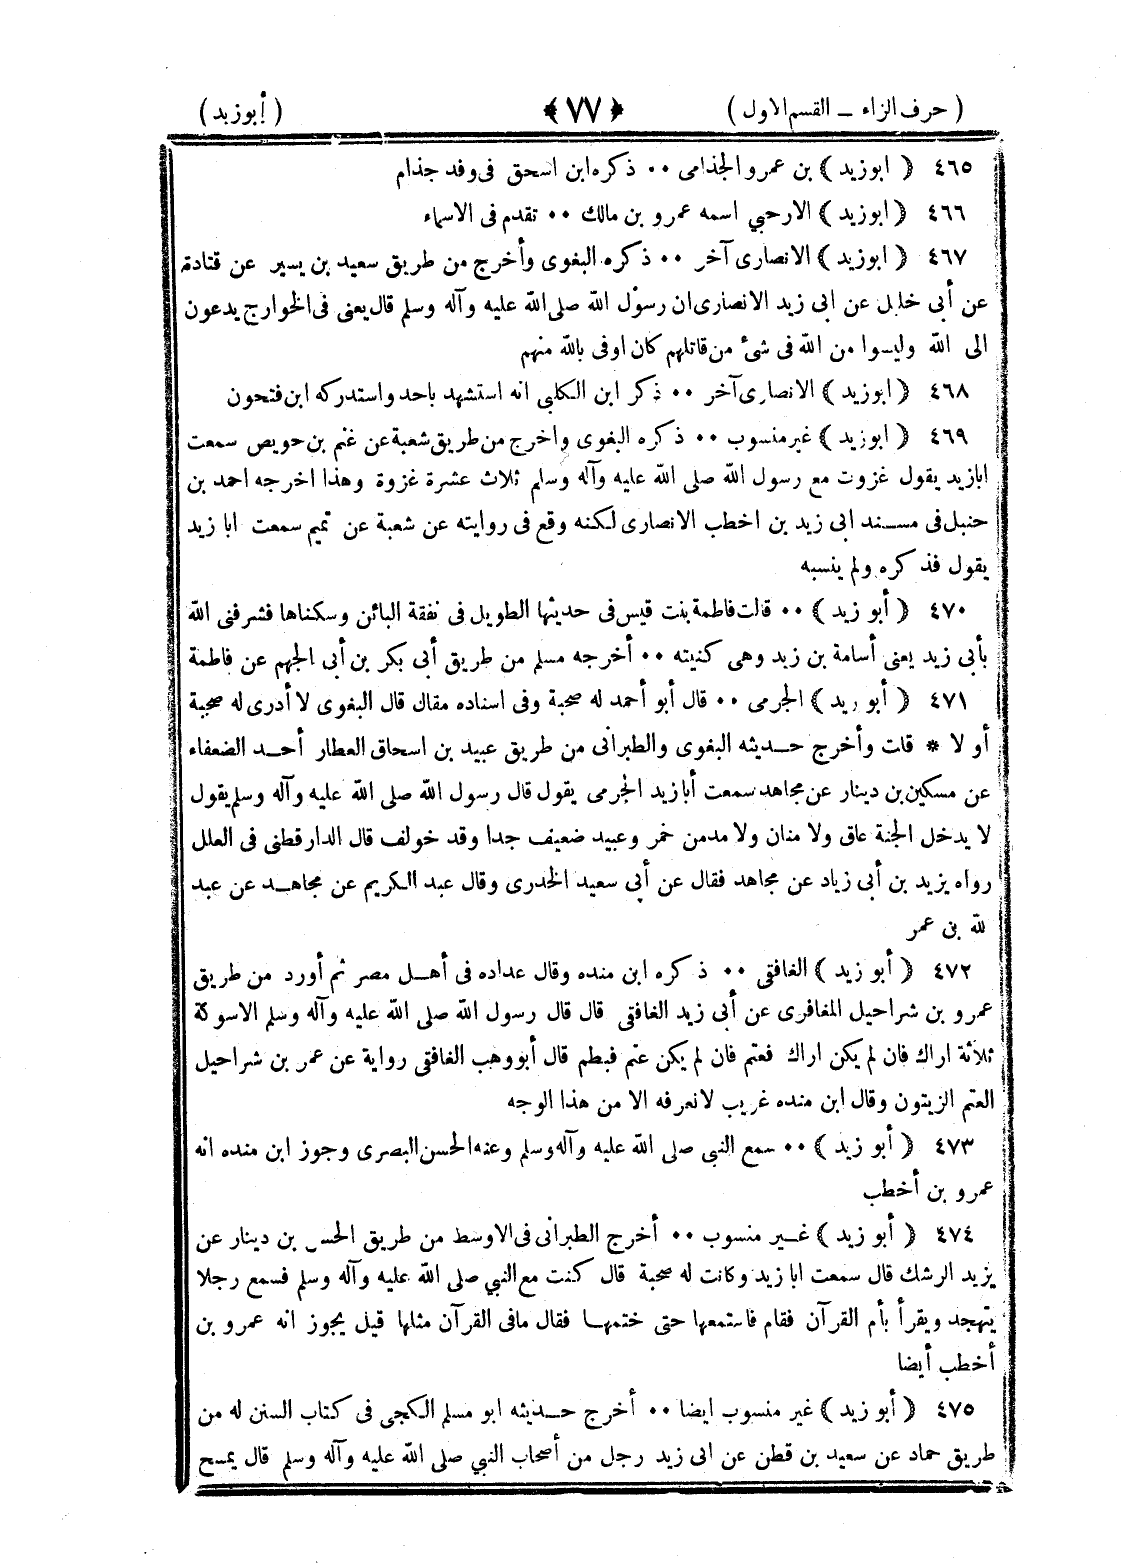 ( حرف الزاء – القسم الاول ) ﴿ ٧٧ ﴾ ( أبوزيد )
٤٦٥ ( ابوزيد ) بن عمرو الجذامى ٠٠ ذكره ابن اسحق فى وفد جذام
٤٦٦ ( ابوزيد ) الارحبي اسمه عمرو بن مالك ٠٠ تقدم فى الاسماء
٤٦٧ ( ابوزيد ) الانصارى آخر ٠٠ ذكره البغوى وأخرج من طريق سعيد بن يسير عن قتادة
عن أبى خليل عن ابى زيد الانصارى ان رسول الله صلى الله عليه وآله وسلم قال يعنى فى الخوارج يدعون
الى الله وليسوا من الله فى شئ من قاتلهم كان اوفى بالله منهم
٤٦٨ ( ابوزيد ) الانصارى آخر ٠٠ ذكر ابن الكلبى انه استشهد باحد واستدركه ابن فتحون
٤٦٩ ( ابوزيد ) غير منسوب ٠٠ ذكره البغوى واخرج من طريق شعبة عن غنم بن حويص سمعت
ابازيد يقول غزوت مع رسول الله صلى الله عليه وآله وسلم ثلاث عشرة غزوة وهذا اخرجه احمد بن
حنبل فى مسند ابى زيد بن اخطب الانصارى لكنه وقع فى روايته عن شعبة عن تميم سمعت ابا زيد
يقول فذكره ولم ينسبه
٤٧٠ ( أبو زيد ) ٠٠ قالت فاطمة بنت قيس فى حديثها الطويل فى نفقة البائن وسكناها فشرفنى الله
بأبى زيد يعنى أسامة بن زيد وهى كنيته ٠٠ أخرجه مسلم من طريق أبى بكر بن أبى الجهم عن فاطمة
٤٧١ ( أبو زيد ) الجرمى ٠٠ قال أبو أحمد له صحبة وفى اسناده مقال قال البغوى لا أدرى له صحبة
أو لا * قلت وأخرج حديثه البغوى والطبرانى من طريق عبيد بن اسحاق العطار أحد الضعفاء
عن مسكين بن دينار عن مجاهد سمعت أبا زيد الجرمى يقول قال رسول الله صلى الله عليه وآله وسلم يقول
لا يدخل الجنة عاق ولا منان ولا مدمن خمر وعبيد ضعيف جدا وقد خولف قال الدارقطنى فى العلل
رواه يزيد بن أبى زياد عن مجاهد فقال عن أبى سعيد الخدرى وقال عبد الكريم عن مجاهد عن عبد
لله بن عمر
٤٧٢ ( أبو زيد ) الغافقى ٠٠ ذكره ابن منده وقال عداده فى أهل مصر ثم أورد من طريق
عمرو بن شراحيل المغافرى عن أبى زيد الغافقى قال قال رسول الله صلى الله عليه وآله وسلم الاسوكة
ثلاثة اراك فان لم يكن اراك فعتم فان لم يكن عتم فبطم قال أبو وهب الغافقى رواية عن عمر بن شراحيل
العتم الزيتون وقال ابن منده غريب لانعرفه الا من هذا الوجه
٤٧٣ ( أبو زيد ) ٠٠ سمع النبى صلى الله عليه وآله وسلم وعنه الحسن البصرى وجوز ابن منده انه
عمرو بن أخطب
٤٧٤ ( أبو زيد ) غير منسوب ٠٠ أخرج الطبرانى فى الاوسط من طريق الحسن بن دينار عن
يزيد الرشك قال سمعت ابا زيد وكانت له صحبة قال كنت مع النبي صلى الله عليه وآله وسلم فسمع رجلا
يتهجد ويقرأ بأم القرآن فقام فاستمعها حتى ختمها فقال مافى القرآن مثلها قيل يجوز انه عمرو بن
أخطب أيضا
٤٧٥ ( أبو زيد ) غير منسوب ايضا ٠٠ أخرج حديثه ابو مسلم الكجى فى كتاب السنن له من
طريق حماد عن سعيد بن قطن عن ابى زيد رجل من أصحاب النبي صلى الله عليه وآله وسلم قال يمسح